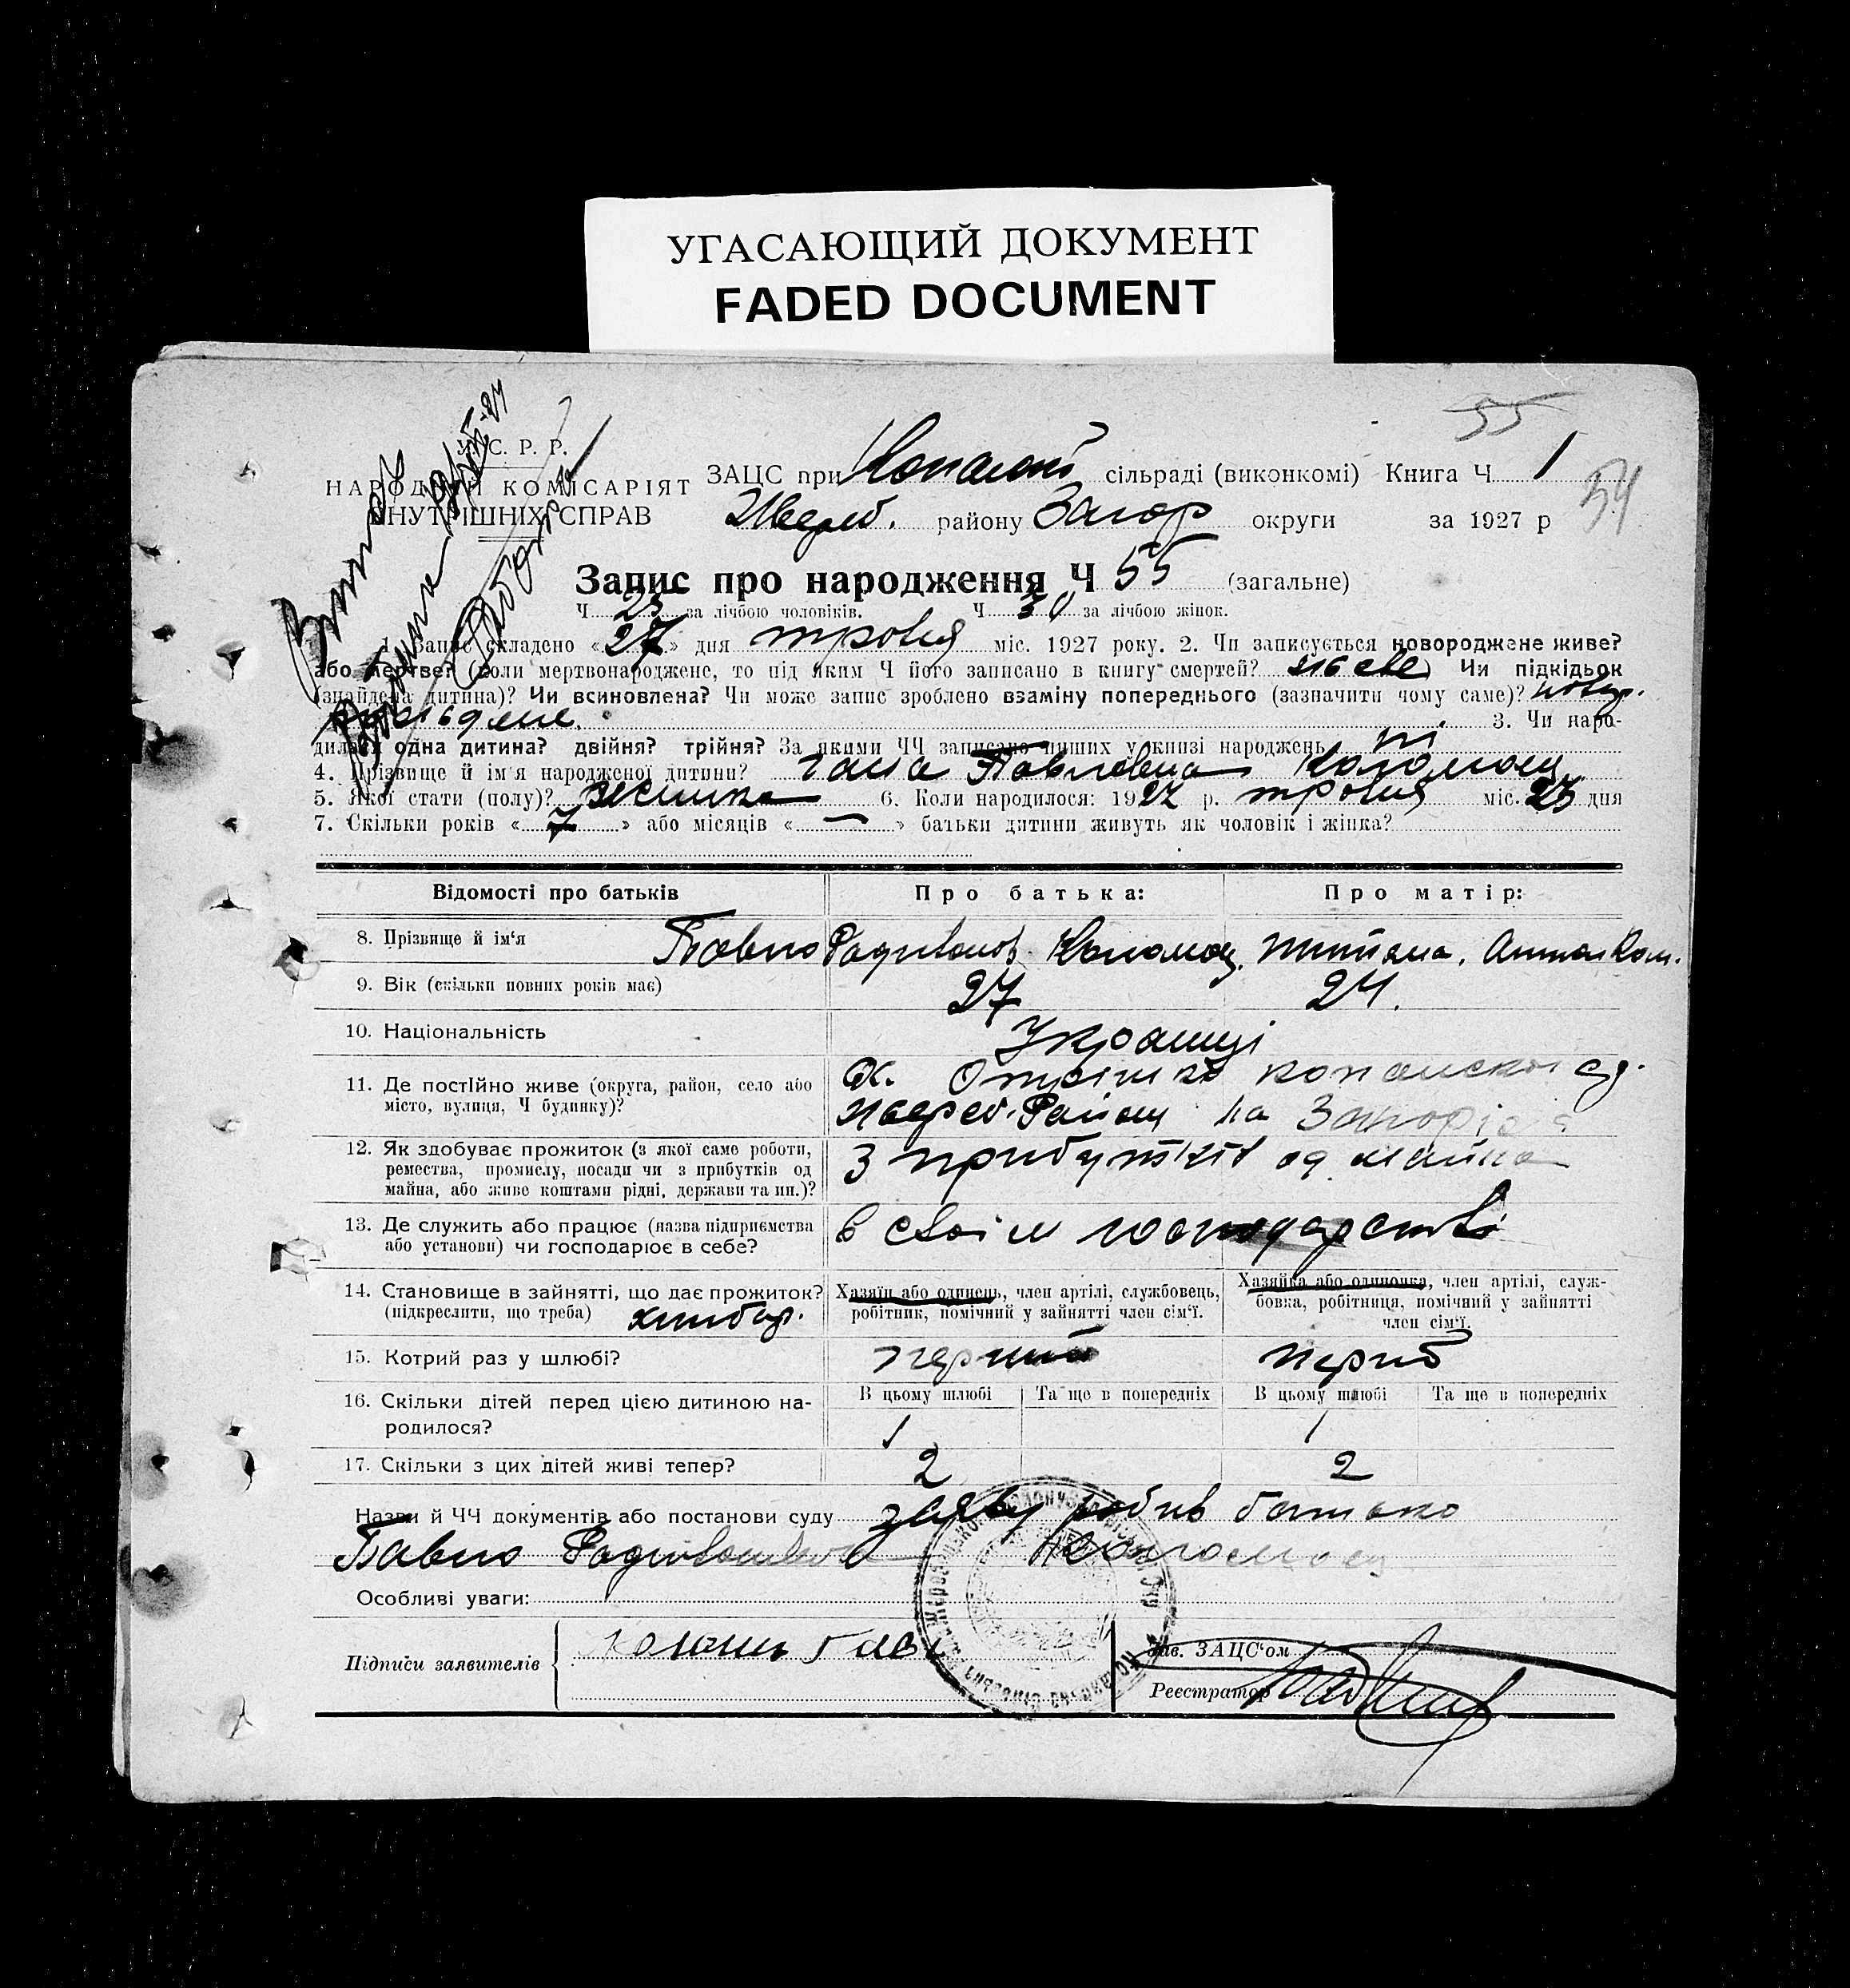 УГАСАЮЩИЙ ДОКУМЕНТ
FADED DOCUMENT
55
54
У. С. Р. Р.
НАРОДНІЙ КОМІСАРІЯТ
ВНУТРІШНІХ СПРАВ
ЗАЦС при сільраді (виконкомі) Книга Ч 1
Жереб. району Запор округи за 1927 р
Запис про народження Ч 55 (загальне)
Ч 25 за лічбою чоловіків. Ч 30 за лічбою жінок.
1. Запис складено «27» дня травня міс. 1927 року. 2. Чи записується новороджене живе?
або мертве? (коли мертвонароджене, то під яким Ч його записано в книгу смертей? живе) Чи підкідьок
(знайдена дитина)? Чи всиновлена? Чи може запис зроблено взаміну попереднього (зазначити чому саме)?
3. Чи наро-
дилася одна дитина? двійня? трійня? За якими ЧЧ записано инших у книзі народжень ні
4. Прізвище й ім'я народженої дитини? Гана Павловна Коломоец
5. Якої стати (полу)? жіночка 6. Коли народилося: 1927 р. травня міс. 25 дня
7. Скільки років «7» або місяців «—» батьки дитини живуть як чоловік і жінка?
Відомості про батьків Про батька: Про матір:
8. Прізвище й ім'я Павло Радивонов Коломоец. Титяна.
9. Вік (скільки повних років має) 27 24.
10. Національність Українці
11. Де постійно живе (округа, район, село або
місто, вулиця, Ч будинку)?
Жереб. Району на Запоріжі
12. Як здобуває прожиток (з якої саме роботи,
ремества, промислу, посади чи з прибутків од
майна, або живе коштами рідні, держави та ин.)?
З прибутків од майна
13. Де служить або працює (назва підприємства
або установи) чи господарює в себе?
в своім господарстві
14. Становище в зайнятті, що дає прожиток?
(підкреслити, що треба) хлибор.
Хазяїн або одинець, член артілі, службовець,
робітник, помічний у зайнятті член сім'ї.
Хазяйка або одиночка, член артілі, служ-
бовка, робітниця, помічний у зайнятті
член сім'ї.
15. Котрий раз у шлюбі? перший перий
16. Скільки дітей перед цією дитиною на-
родилося?
В цьому шлюбі Та ще в попередніх В цьому шлюбі Та ще в попередніх
1 1
17. Скільки з цих дітей живі тепер? 2 2
Назви й ЧЧ документів або постанови суду заяву робив батько
Павло Радивонович Коломоец
Особливі уваги:
Підписи заявителів
Зав. ЗАЦС'ом
Реєстратор